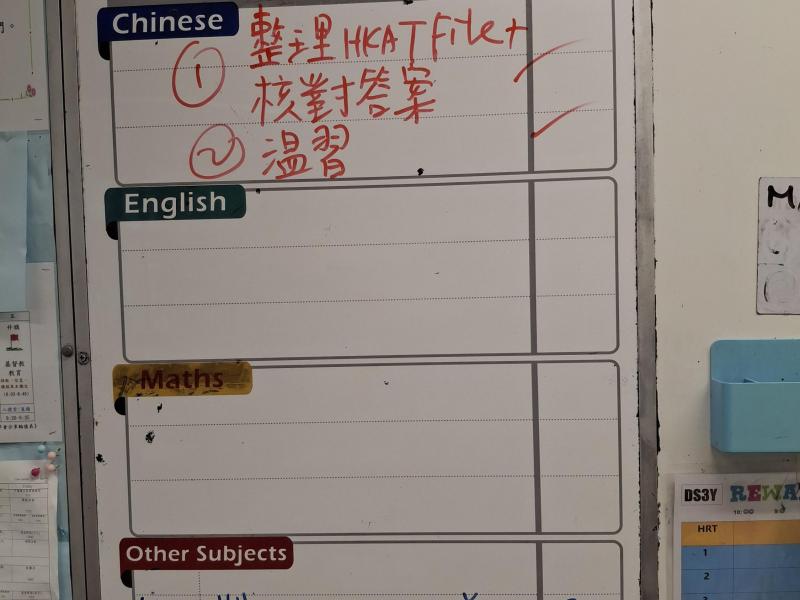 Chinese
① 整理 HKAT File +
核對答案
② 溫習
English
Maths
Other Subjects
基督教
教育
DS3Y REWA
HRT
1
2